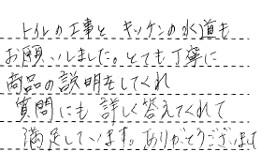 トイレの工事と キッチンの水道も
お願いしました。とても丁寧に
商品の説明をしてくれ
質問にも 詳しく答えてくれて
満足しています。ありがとうございます